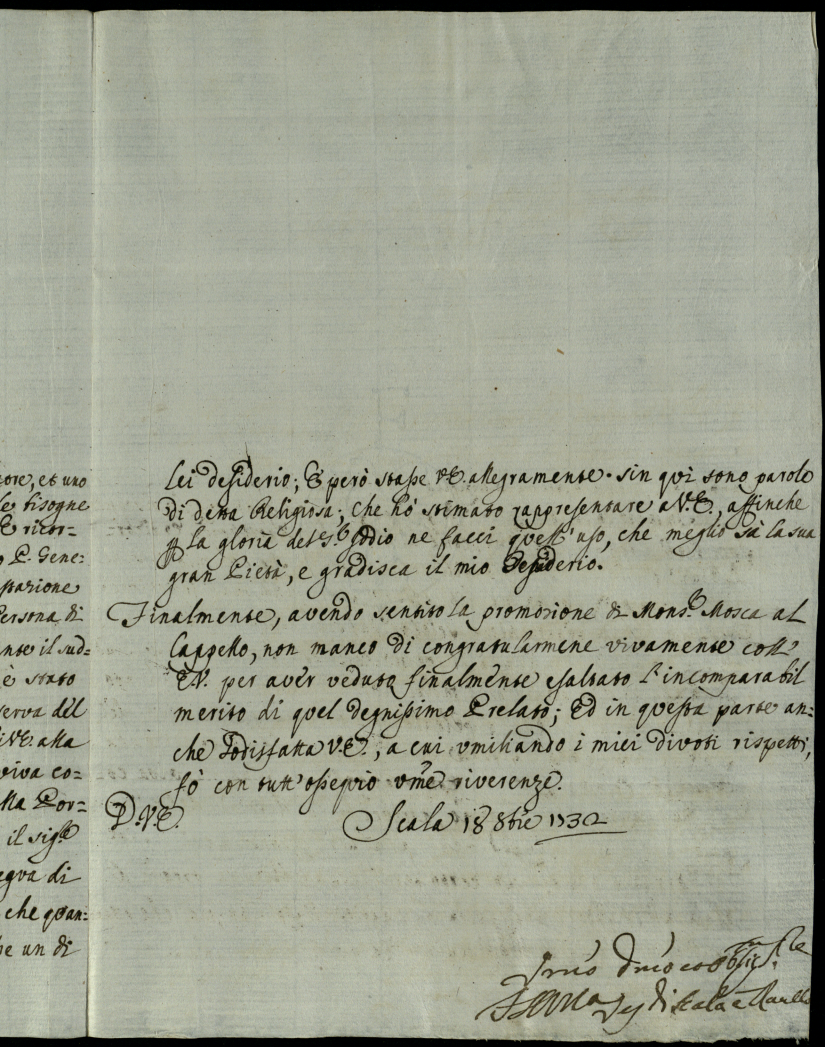 tore, et uno
le bisogne
E ricor=
o P. Gene:
stazione
Persona di
nte il sud=
è stato
serva del
V.E. alla
viva co=
lla Por=
il sig.re
egva di
che qvan:
he un di
lei desiderio; E però stasse V.E. allegramente. sin qvì sono parole
di detta Religiosa; che hò stimato rappresentare a V.E., affinche
la gloria del Iddio ne facci qvell'uso, che meglio sà la sua
gran Pietà, e gradisca il mio desiderio.
Finalmente, avendo sentito la promozione di Mons.r Mosca al
Cappello, non manco di congratularmene vivamente coll'
E.V. per avèr veduto finalmente esaltato l'incomparabil
merito di qvel degnissimo Prelato; Ed in qvesta parte an:
che sodisfatta V.E., a cui vmiliando i miei divoti rispetti,
fò con tutt'osseqvio vme riverenze.
D.V.E.
Scala 18 8bre 1732
di Scala e Ravello